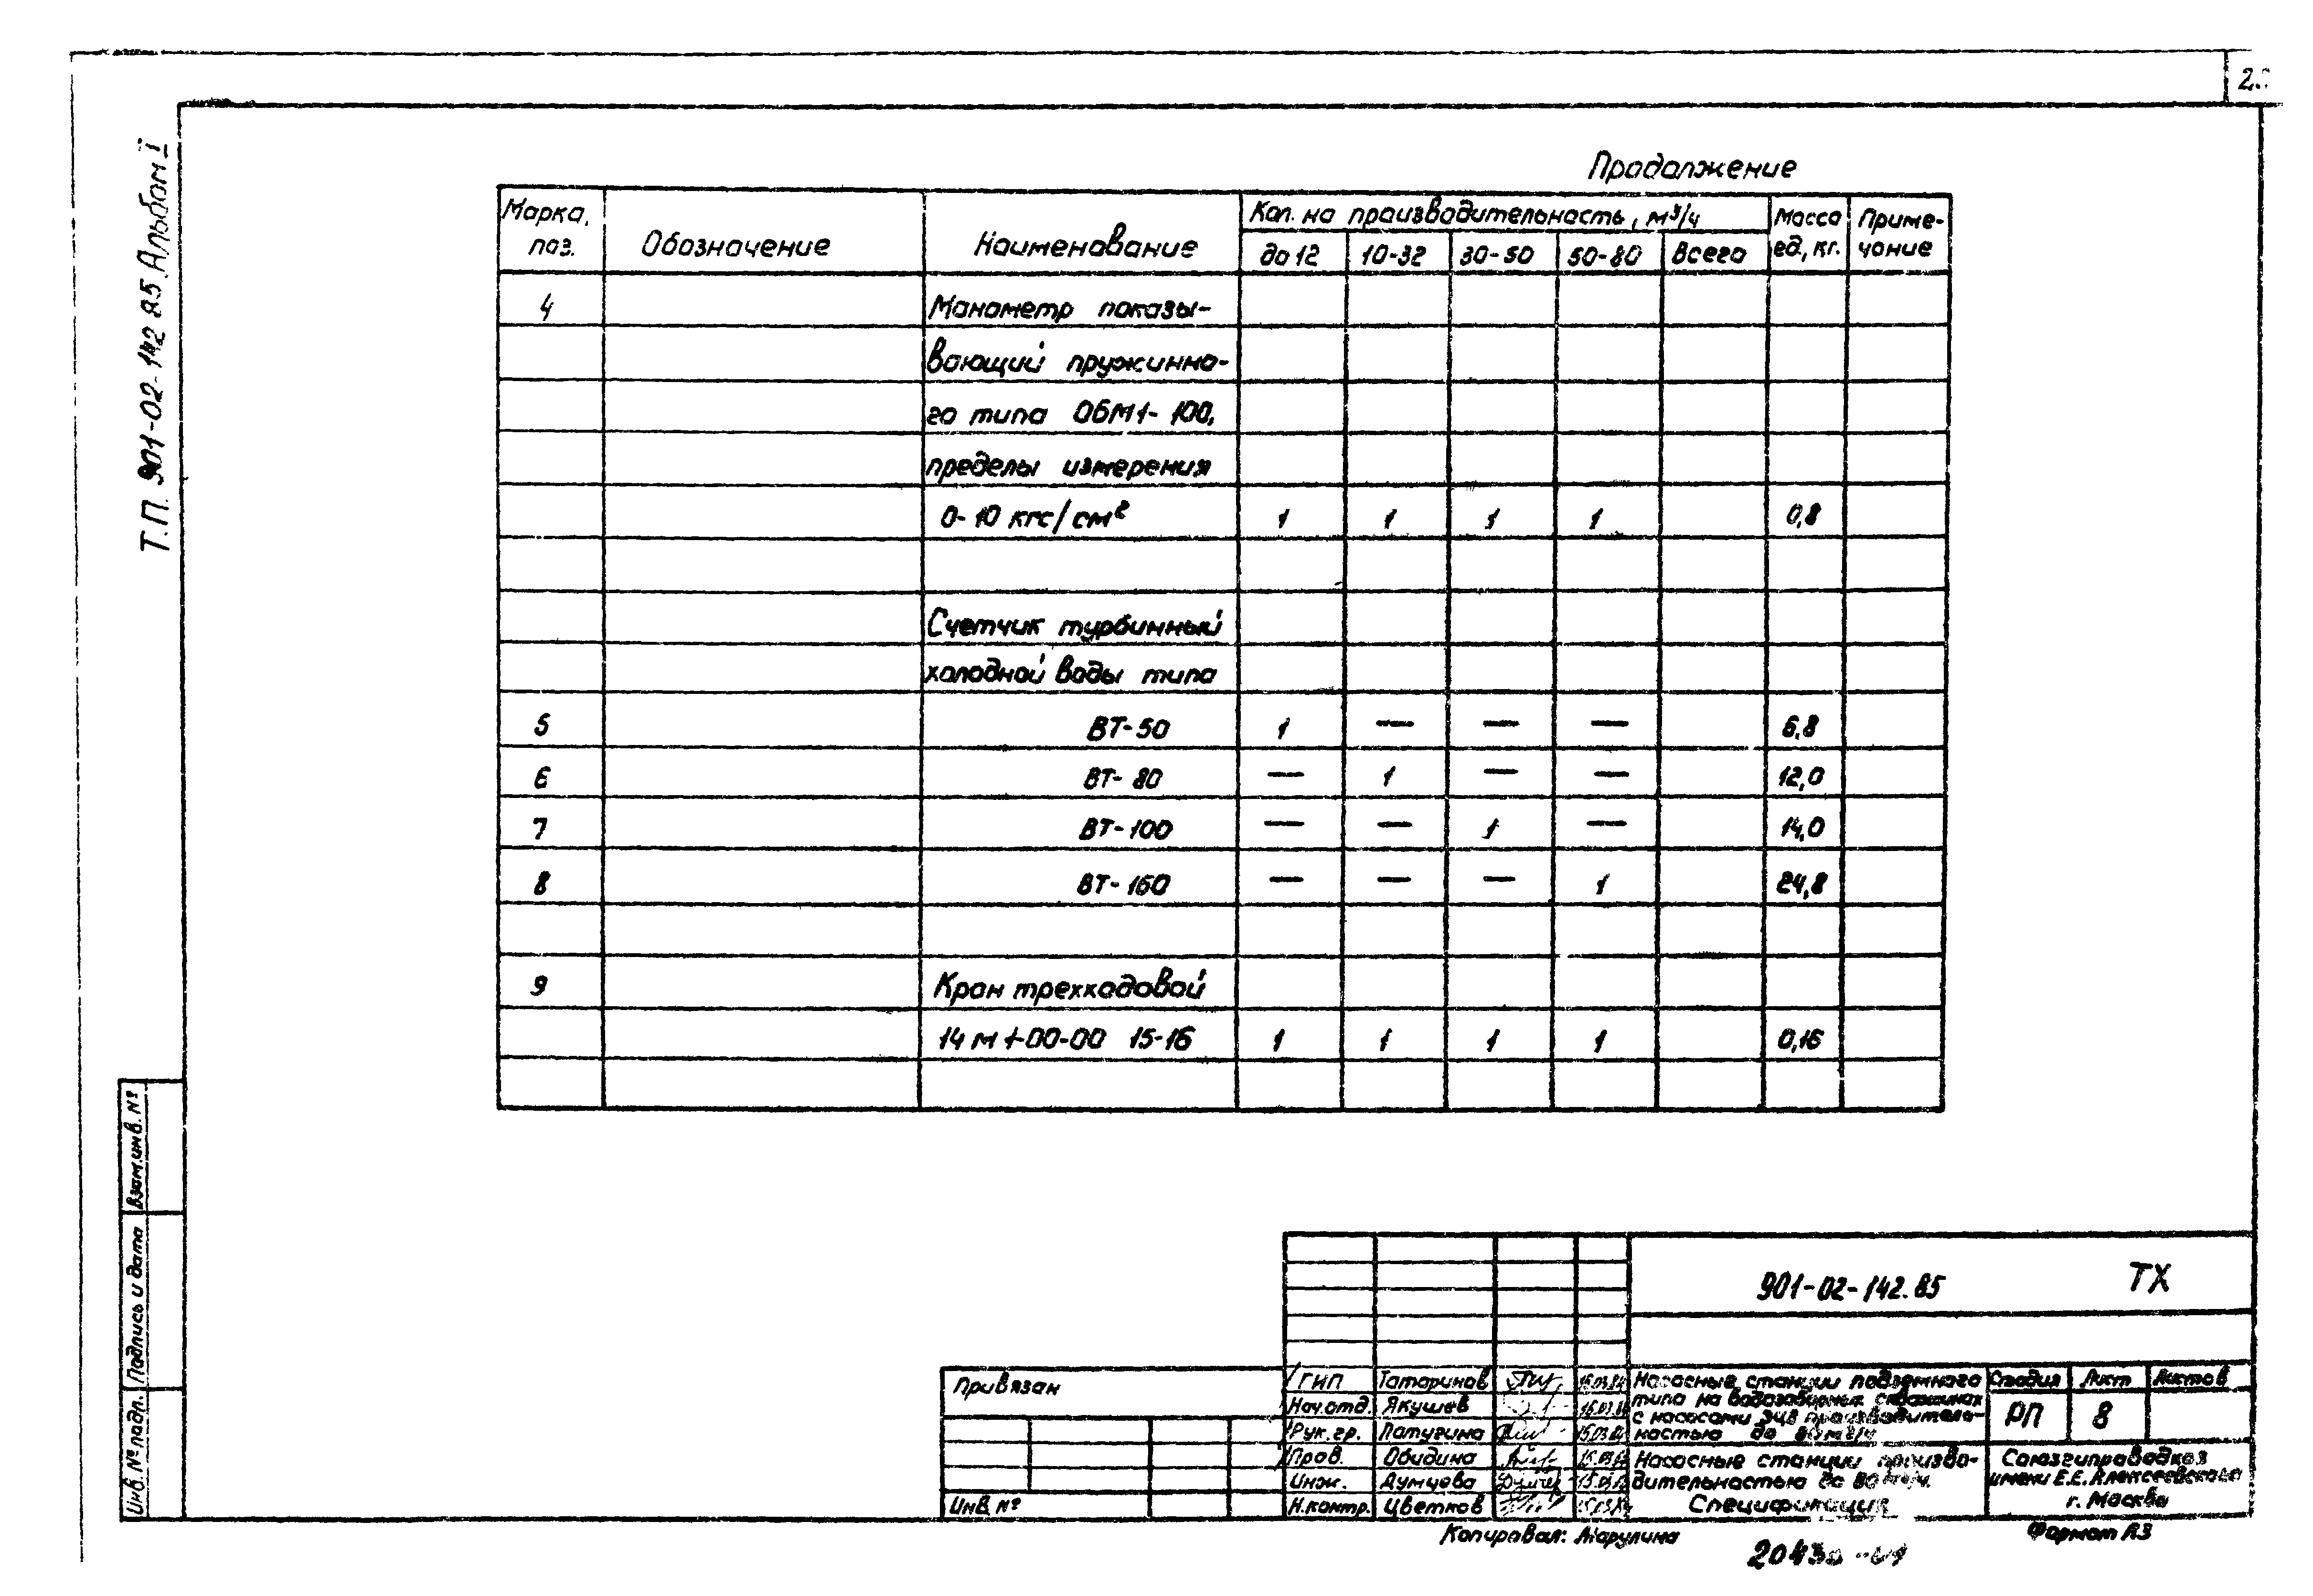 Т.П. 901-02-142.85 Альбом I
Продолжение
Марка, поз. Обозначение Наименование Кол. на производительность, м³/ч Масса ед., кг. Приме-чание
до 12 10-32 30-50 50-80 Всего
4 Манометр показы-
вающий пружинно-
го типа ОБМ1-100,
пределы измерения
0-10 кгс/см² 1 1 1 1 0,8
Счетчик турбинный
холодной воды типа
5 ВТ-50 1 — — — 6,8
6 ВТ-80 — 1 — — 12,0
7 ВТ-100 — — 1 — 14,0
8 ВТ-150 — — — 1 24,8
9 Кран трехходовой
14 м 1-00-00 15-16 1 1 1 1 0,16
Взам.инв. №
Подпись и дата
Инв. № подл.
901-02-142.85 ТХ
Привязан
Инв. №
ГИП Татаринов
Нач.отд. Якушев
Рук.гр. Патугина
Пров. Обидина
Инж. Думцева
Н.контр. Цветков
Насосные станции подземного
типа на водозаборных скважинах
с насосами ЭЦВ производитель-
ностью до
Насосные станции произво-
дительностью до 80
Спецификация
Стадия Лист Листов
РП 8
Союзгипроводхоз
имени Е.Е.Алексеевского
г. Москва
Копировал: Марулина
Формат А3